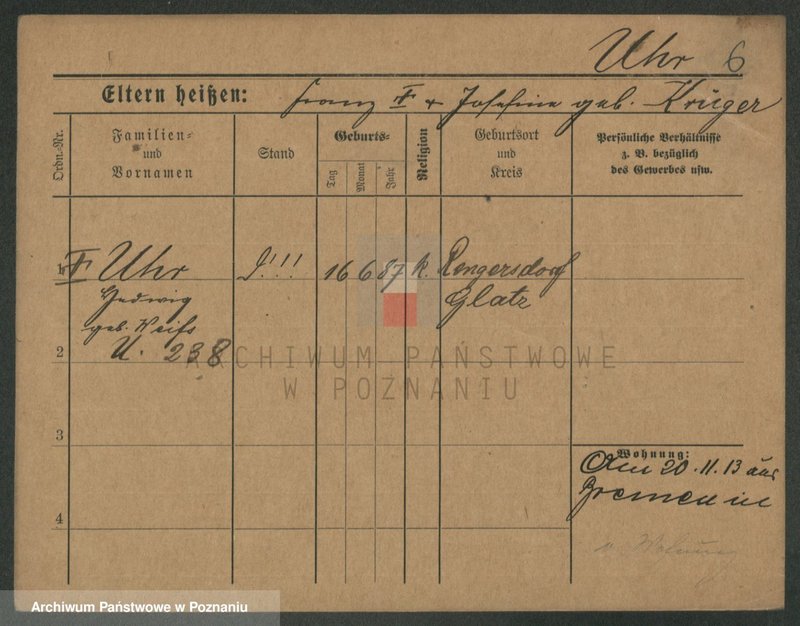 Uhr 6
Eltern heißen: Franz II + Josefine geb. Krüger
Ordn.-Nr.
Familien- und Vornamen
Stand
Geburts-
Tag
Monat
Jahr
Religion
Geburtsort und Kreis
Persönliche Verhältnisse
z. B. bezüglich
des Gewerbes usw.
Uhr 16 6 87 k. Rengersdorf
Hedwig Glatz
geb.
U. 238
2
3
Wohnung:
Am 20.11.13 aus
Bremen in
4
ARCHIWUM PAŃSTWOWE
W POZNANIU
Archiwum Państwowe w Poznaniu